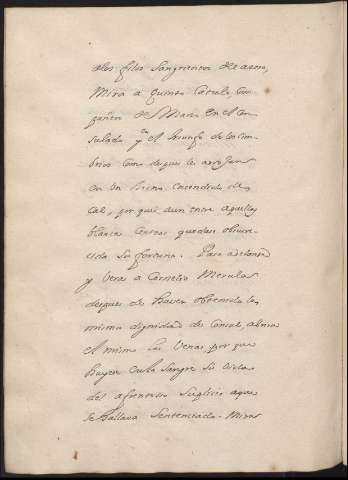 delos filos sangrientos del azero,
Mira a Quinto Catulo Com
pañero de Mario en el Con
sulado, y el triunfo de los Cim
brios como despues le arrojan
en un horno encendido de
Cal, por que aun entre aquellas
blancas Cenizas quedase obscu
recida su fortuna. Pasa adelante
y veras a Cornelio Merula
despues de haver obtenido la
misma dignidad de Consul, abrirse
el mismo las Venas, por que
huyese en la sangre su vida
del afrentoso suplicio a que
se hallava sentenciado. Miras